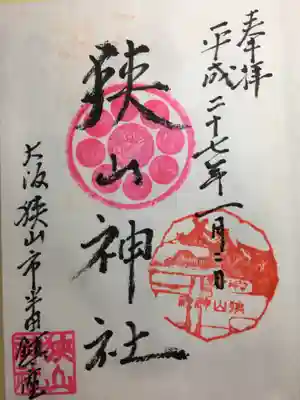 奉拝
平成二十七年一月二日
狭山神社
大阪狭山市半田鎮座
狭山神社